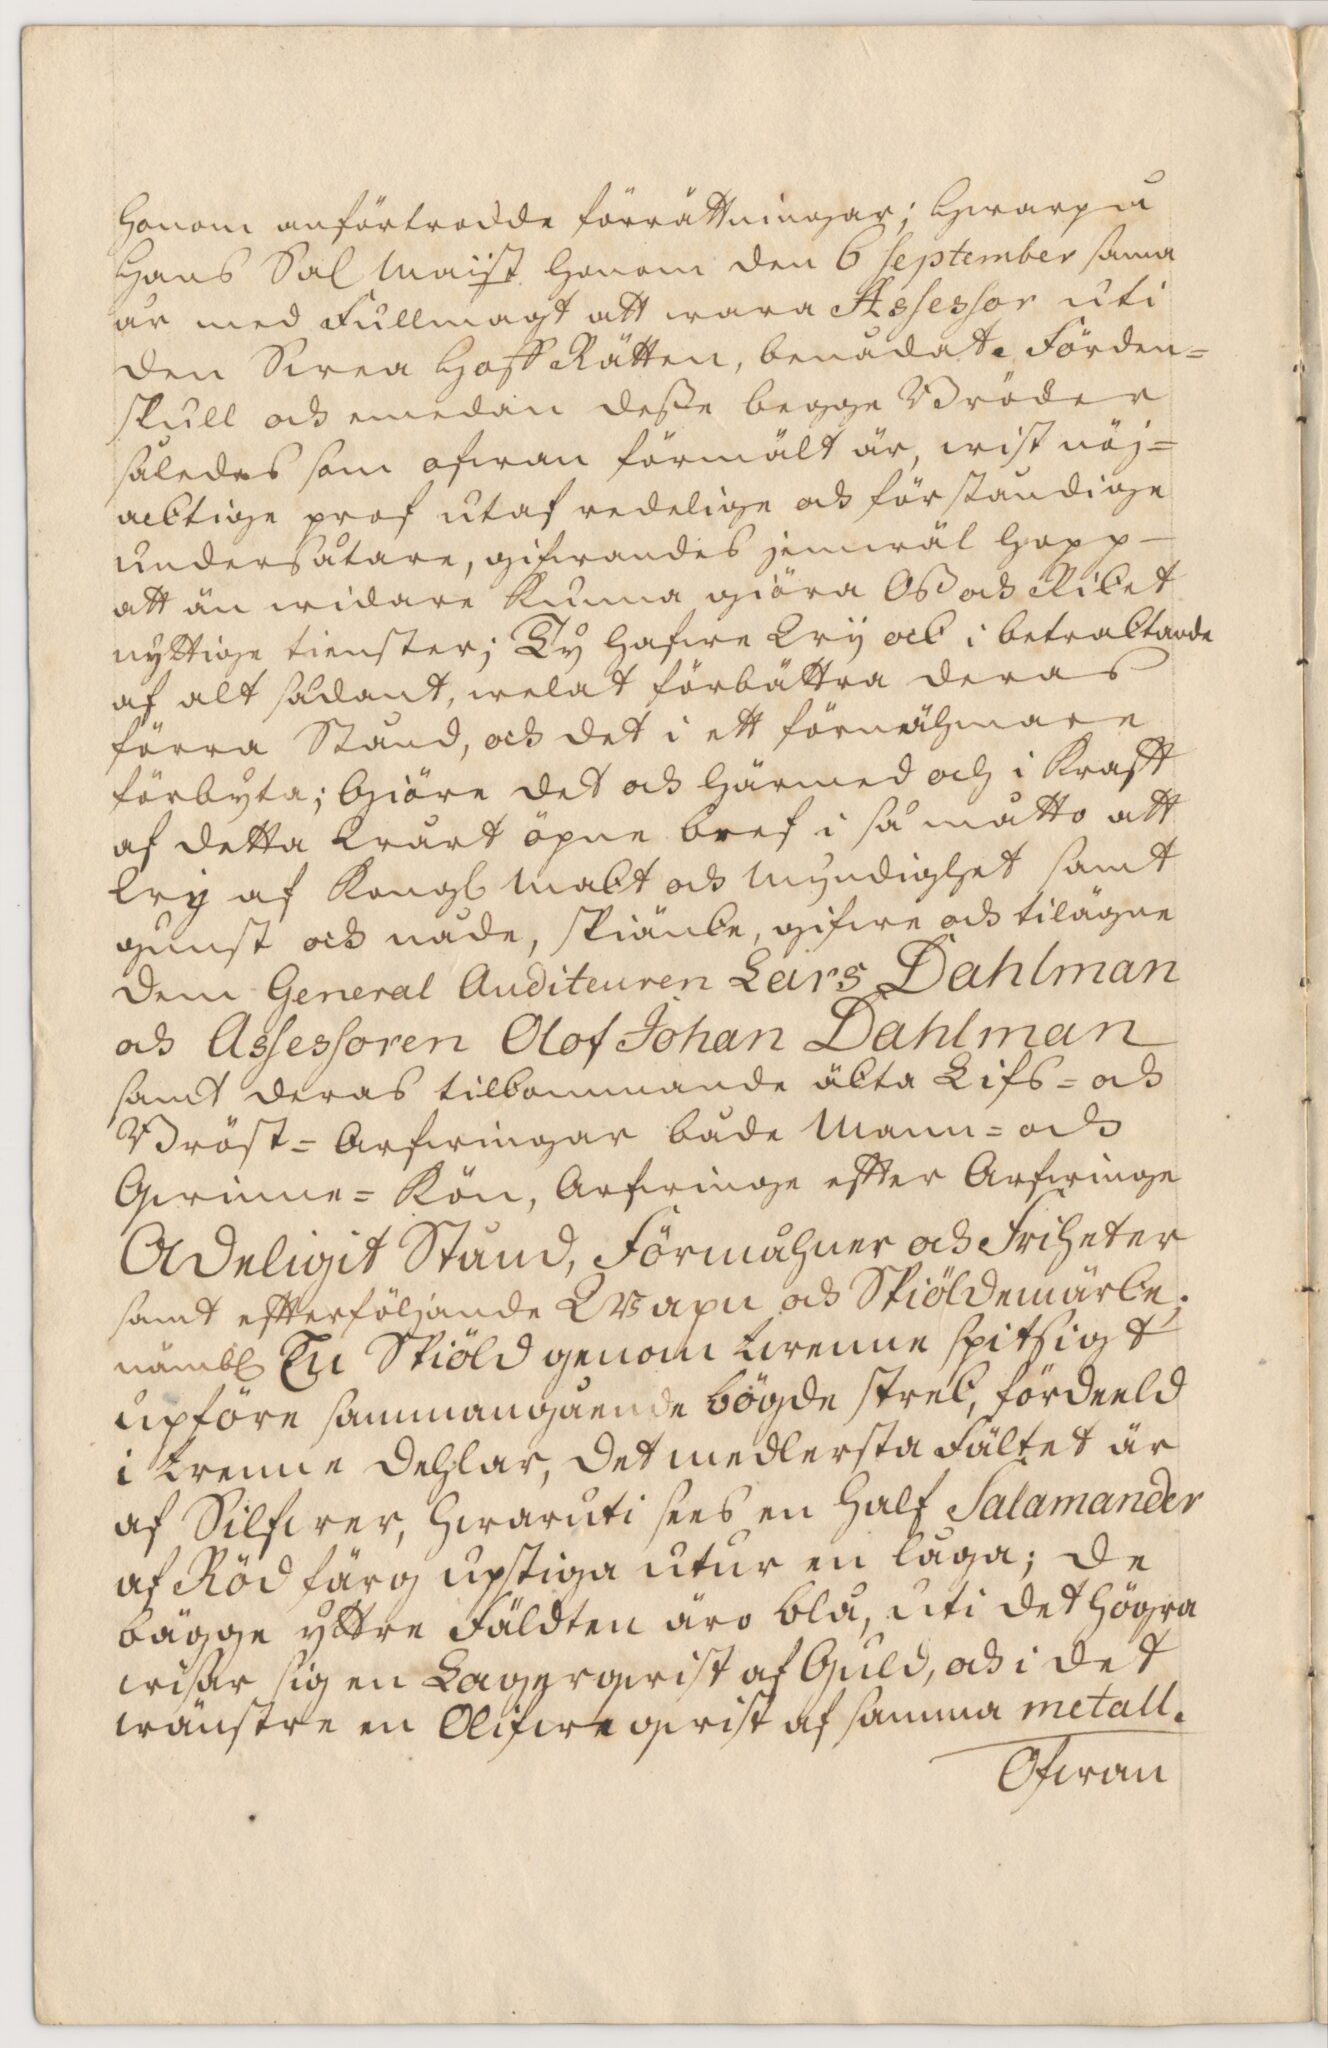 honom anförtrodde förrättningar; hwarpå
Hans Sal Maijst honom den 6 September sama
år med Fullmagt att wara Assessor uti
den Swea Hoff Rätten, benådat. Förden=
skull och emedan desse begge Bröder
således som ofwan förmält är, wist nöj=
acktige prof utaf redelige och förståndige
undersåtare, gifwandes jemwäl hopp
att än widare kunna giöra Oss och Riket
nyttige tienster; Ty hafwe Wij ock i betraktande
af alt sådant, welat förbättra deras
förra Stånd, och det i ett förnähmare
förbyta; Giöre det och härmed och i Krafft
af detta Wårt öpne bref i så måtto att
Wij af Kongl Makt och Myndighet samt
gunst och nåde, skiänke, gifwe och tilägne
dem General Auditeuren Lars Dahlman
och Assessoren Olof Johan Dahlman
samt deras tilkommande äkta Lifs= och
Bröst= Arfwingar både Mann= och
Qwinne= Kön, Arfwinge efter Arfwinge
Adeligit Stånd, Förmåhner och Friheter
samt efterföljande Wapn och Skiöldemärke;
nämbl En Skiöld genom trenne spitsigt
upföre sammangående bögde strek, fördeeld
i trenne dehlar, det medlersta Fältet är
af Silfwer, hwaruti sees en half Salamander
af Röd färg upstiga utur en låga; de
bägge yttre Fäldten äro blå, uti det högra
wisar sig en Lagerqwist af Guld, och i det
wänstre en Olifwe qwist af samma metall.
Ofwan